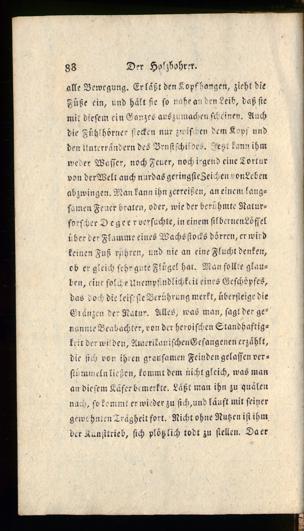 88 Der Holzbohrer.
alle Bewegung. Er läßt den Kopf hangen, zieht die
Füße ein, und hält sie so nahe an den Leib, daß sie
mit diesem ein Ganzes auszumachen scheinen. Auch
die Fühlhörner stecken nur zwischen dem Kopf und
den Unterrändern des Brustschildes. Jetzt kann ihm
weder Wasser, noch Feuer, noch irgend eine Tortur
von der Welt auch nur das geringste Zeichen von Leben
abzwingen. Man kann ihn zerreißen, an einem lang-
samen Feuer braten, oder, wie der berühmte Natur-
forscher Degeer versuchte, in einem silbernen Löffel
über der Flamme eines Wachsstocks dörren, er wird
keinen Fuß rühren, und nie an eine Flucht denken,
ob er gleich sehr gute Flügel hat. Man sollte glau-
ben, eine solche Unempfindlichkeit eines Geschöpfes,
das doch die leiseste Berührung merkt, übersteige die
Gränzen der Natur. Alles, was man, sagt der ge-
nannte Beobachter, von der heroischen Standhaftig-
keit der wilden, Amerikanischen Gefangenen erzählt,
die sich von ihren grausamen Feinden gelassen ver-
stümmeln ließen, kommt dem nicht gleich, was man
an diesem Käfer bemerkte. Läßt man ihn zu quälen
nach, so kommt er wieder zu sich, und läuft mit seiner
gewohnten Trägheit fort. Nicht ohne Nutzen ist ihm
der Kunsttrieb, sich plötzlich todt zu stellen. Daer